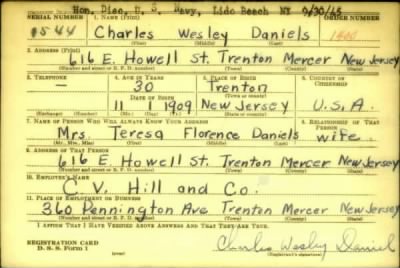 Hon. Disc, U. S. Navy, Lido Beach NY 9/30/45
SERIAL NUMBER 1. NAME (Print) ORDER NUMBER
1544 Charles Wesley Daniels 1400
(First) (Middle) (Last)
2. ADDRESS (Print)
616 E. Howell St. Trenton Mercer New Jersey
(Number and street or R. F. D. number) (Town) (County) (State)
3. TELEPHONE 4. AGE IN YEARS 5. PLACE OF BIRTH 6. COUNTRY OF CITIZENSHIP
— 30 Trenton
DATE OF BIRTH (Town or county)
11 1 1909 New Jersey U.S.A.
(Exchange) (Number) (Mo.) (Day) (Yr.) (State or country)
7. NAME OF PERSON WHO WILL ALWAYS KNOW YOUR ADDRESS 8. RELATIONSHIP OF THAT PERSON
Mrs. Teresa Florence Daniels wife
(Mr., Mrs., Miss) (First) (Middle) (Last)
9. ADDRESS OF THAT PERSON
616 E. Howell St. Trenton Mercer New Jersey
(Number and street or R. F. D. number) (Town) (County) (State)
10. EMPLOYER'S NAME
C. V. Hill and Co.
11. PLACE OF EMPLOYMENT OR BUSINESS
360 Pennington Ave Trenton Mercer New Jersey
(Number and street or R. F. D. number) (Town) (County) (State)
I AFFIRM THAT I HAVE VERIFIED ABOVE ANSWERS AND THAT THEY ARE TRUE.
REGISTRATION CARD
D. S. S. Form 1
Charles Wesley Daniels